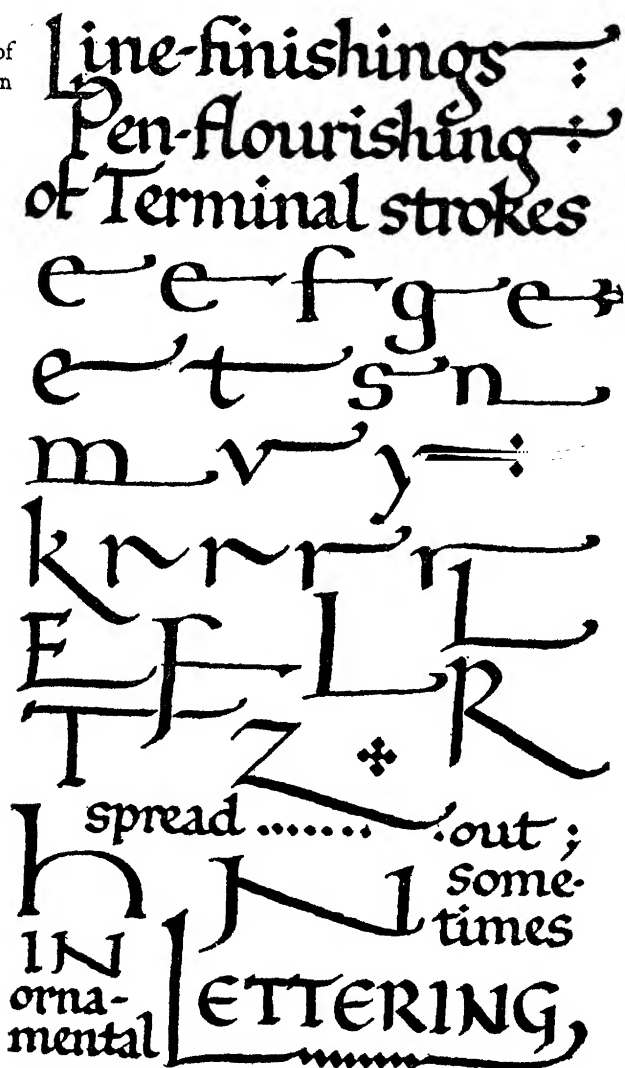 of
n
Line-finishings
Pen-flourishing
of Terminal strokes
e e f g e
e t s n
m v y
k r r r r
E F L L
T Z R
spread ....... out ;
h N some-
times
IN
orna-
mental LETTERING,